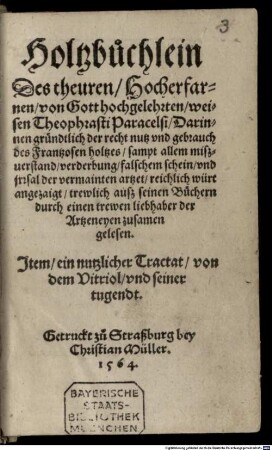 3
Holtzbůchlein
Des theuren/ Hocherfar-
nen/ von Gott hochgelehrten/ wei-
sen Theophrasti Paracelsi/ Darin-
nen gründtlich der recht nutz vnd gebrauch
des Frantzosen holtzes/ sampt allem misz-
uerstand/ verderbung/ falschem schein/ vnd
jrrsal der vermainten artzet/ reichlich würt
angezaigt/ trewlich ausz seinen Bůchern
durch einen trewen liebhaber der
Artzeneyen zusamen
gelesen.
Item/ ein nutzlicher Tractat/ von
dem Vitriol/ vnd seiner
tugendt.
Getruckt zů Straßburg bey
Christian Müller.
1564.
BAYERISCHE
STAATS-
BIBLIOTHEK
MUENCHEN